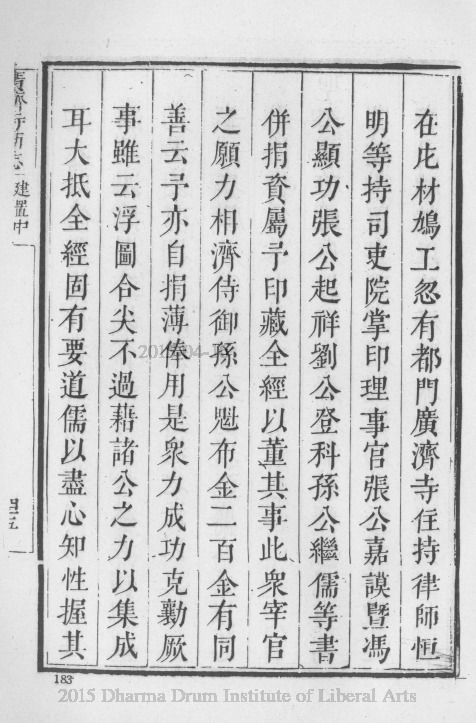 在庀材鳩工忽有都門廣濟寺住持律師恒
明等持司吏院掌印理事官張公嘉謨暨馮
公顯功張公起祥劉公登科孫公繼儒等書
併捐資屬予印藏全經以董其事此衆宰官
之願力相濟侍御孫公魁布金二百金有同
善云予亦自捐薄俸用是衆力成功克勷厥
事雖云浮圖合尖不過藉諸公之力以集成
耳大抵全經固有要道儒以盡心知性握其
廣濟寺新志 建置中 四五
183
2015 Dharma Drum Institute of Liberal Arts